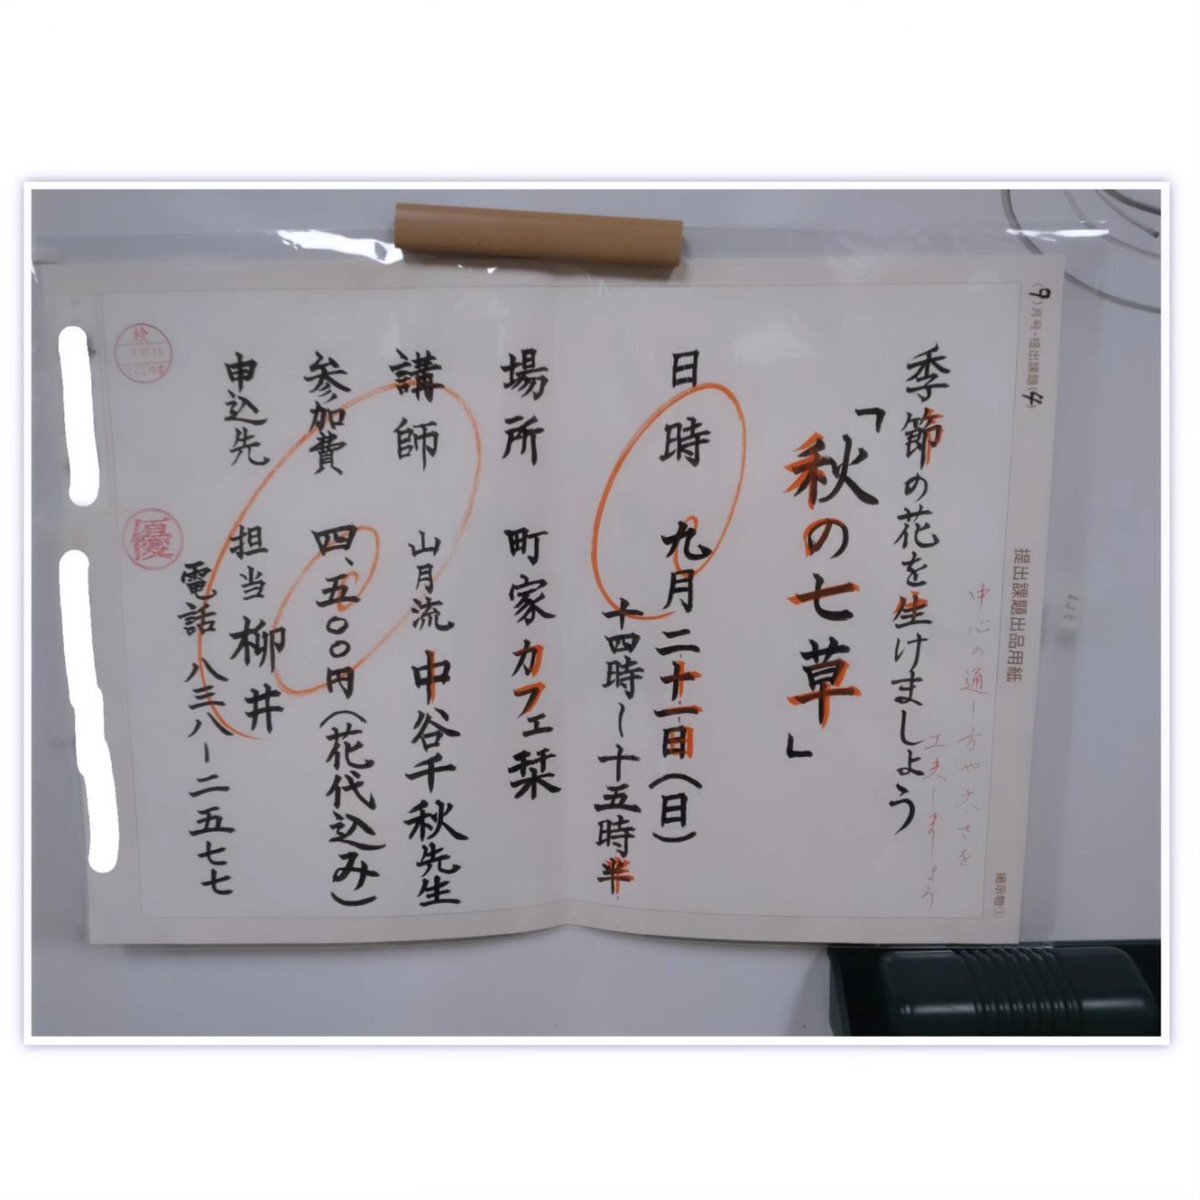 (9)月号・提出課題(4)
提出課題出品用紙
掲示物①
中心の通し方や太さを
工夫しましょう
季節の花を生けましょう
「秋の七草」
日時 九月二十一日(日)
十四時〜十五時半
場所 町家カフェ栞
講師 山月流 中谷千秋先生
参加費 四、五〇〇円(花代込み)
申込先 担当 柳井
電話 八三八ー二五七七
検
優